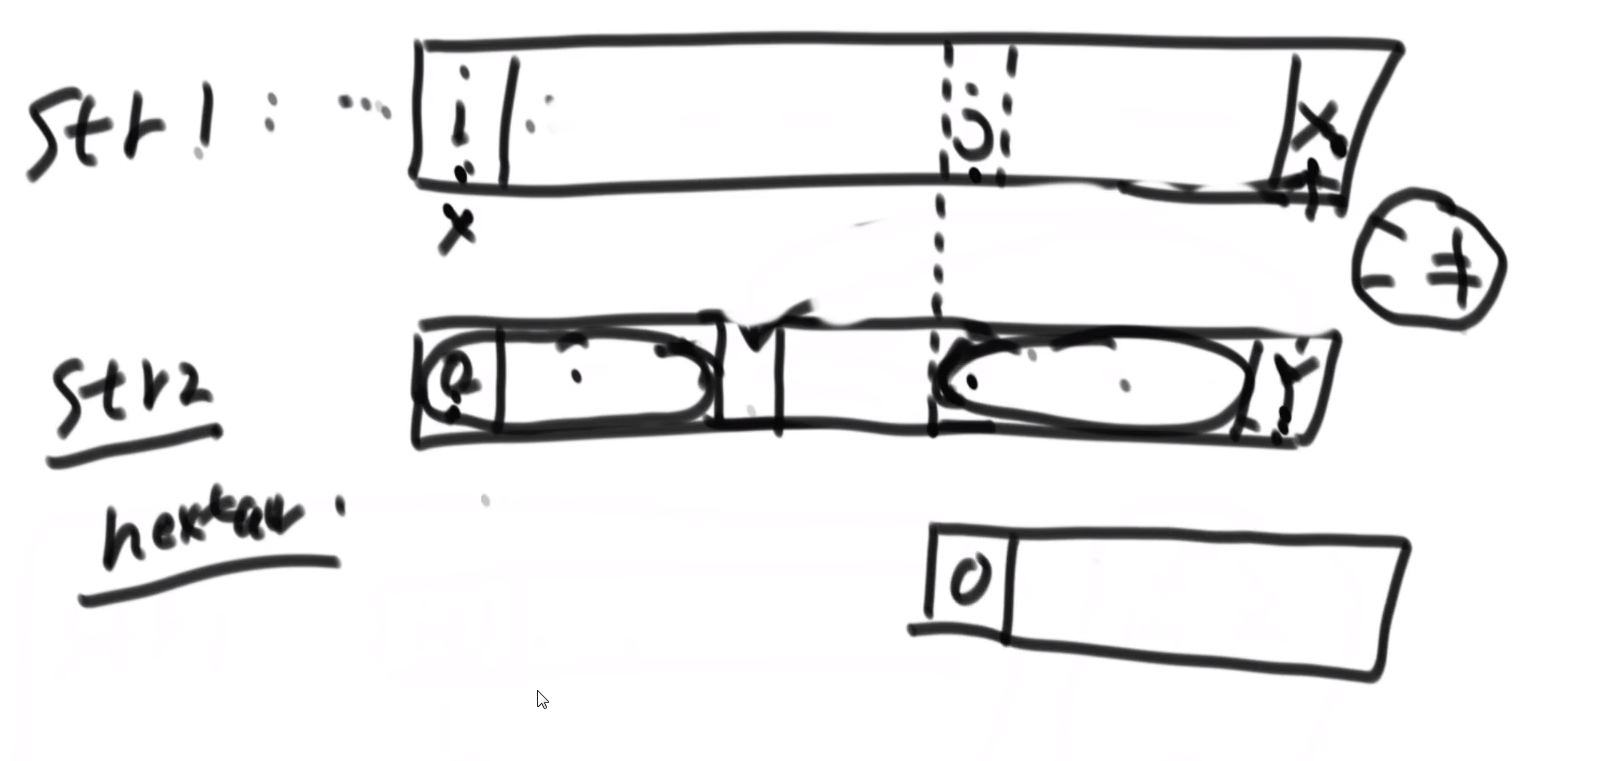 str1 : i j X
x
≠
str2 0 Y
nextarr
0